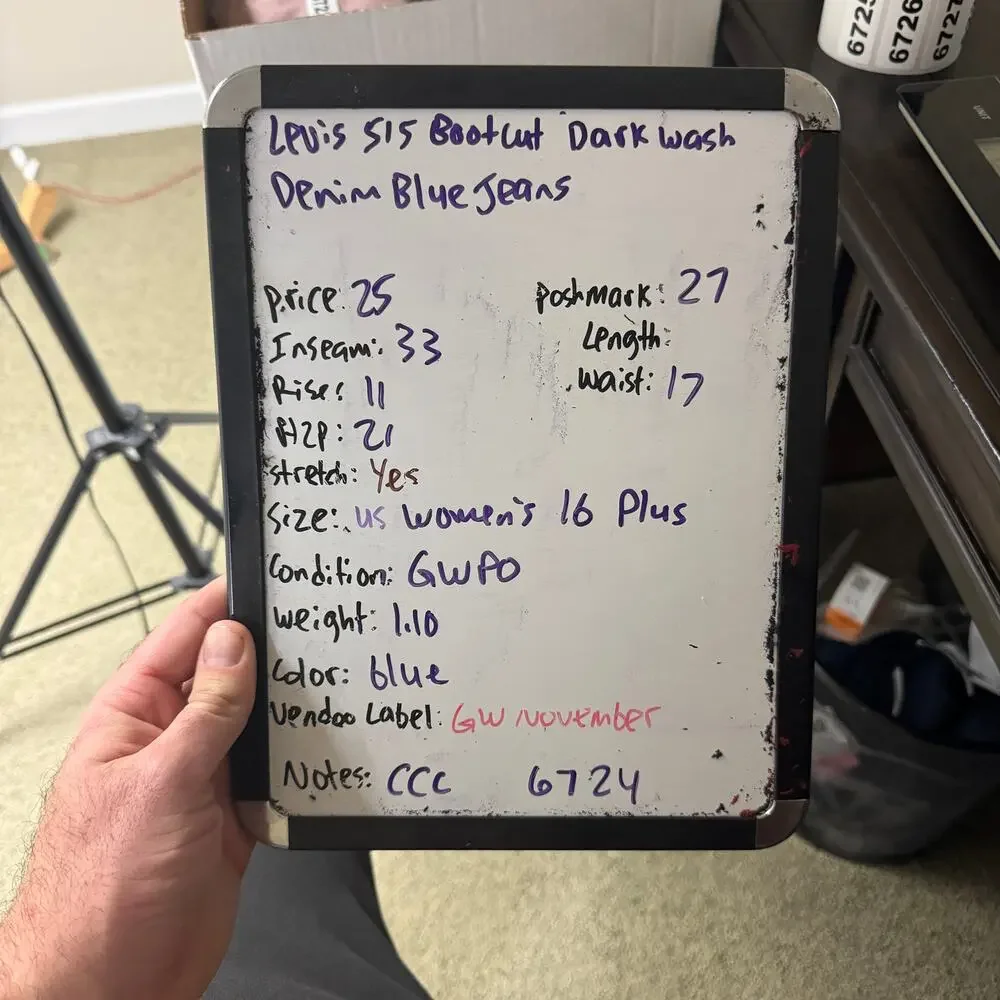 6725 6726 6727
Levis 515 Bootcut Dark wash
Denim Blue Jeans
price: 25 Poshmark: 27
Inseam: 33 Length:
Rise: 11 Waist: 17
P2P: 21
stretch: Yes
Size: US Women's 16 Plus
Condition: GWPO
Weight: 1.10
Color: blue
Vendoo Label: GW November
Notes: CCC 6724
UNIT